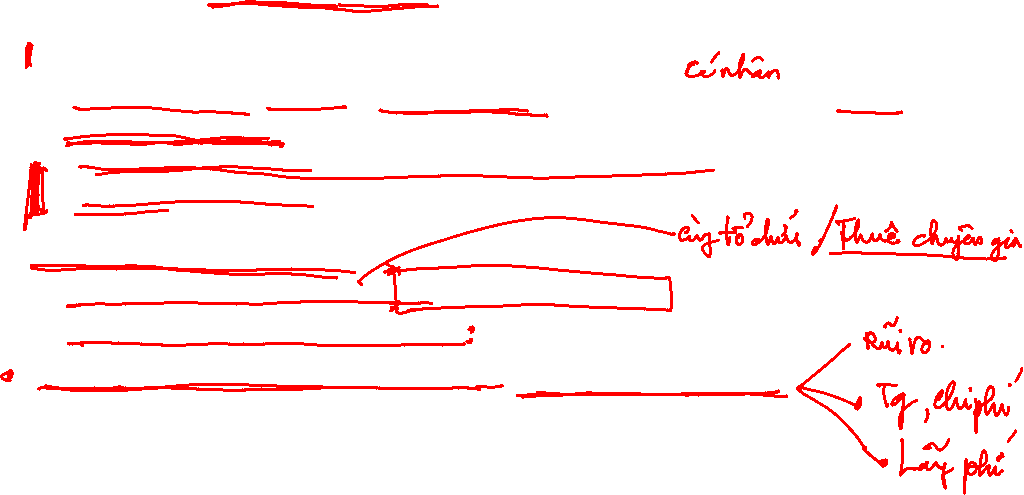 Cá nhân
cùng tổ chức / Thuê chuyên gia
Rủi ro.
Tg, chi phí
Lấy phí